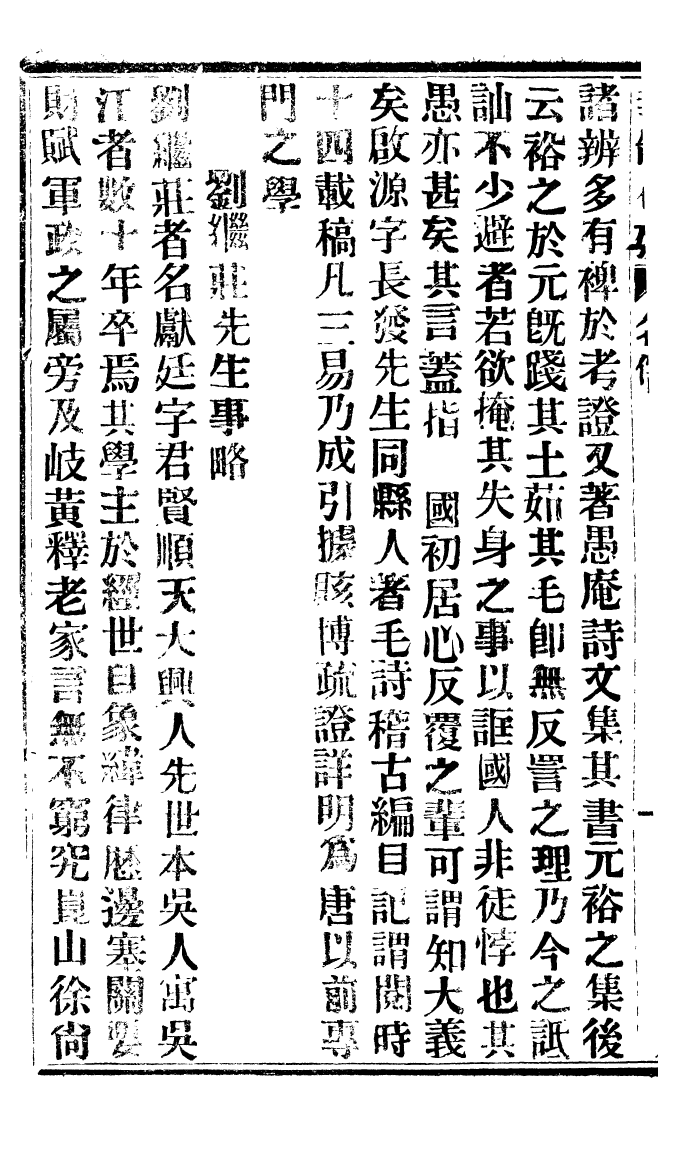 諸辨多有裨於考證又著愚庵詩文集其書元裕之集後
云裕之於元旣踐其土茹其毛卽無反詈之理乃今之詆
訕不少避者若欲掩其失身之事以誑國人非徒悖也其
愚亦甚矣其言蓋指　國初居心反覆之輩可謂知大義
矣啟源字長發先生同縣人著毛詩稽古編目記謂閱時
十四載稿凡三易乃成引據賅博疏證詳明爲唐以前專
門之學
劉繼莊先生事略
劉繼莊者名獻廷字君賢順天大興人先世本吳人寓吳
江者數十年卒焉其學主於經世自象緯律歷邊塞關要
財賦軍政之屬旁及岐黃釋老家言無不窮究崑山徐尙